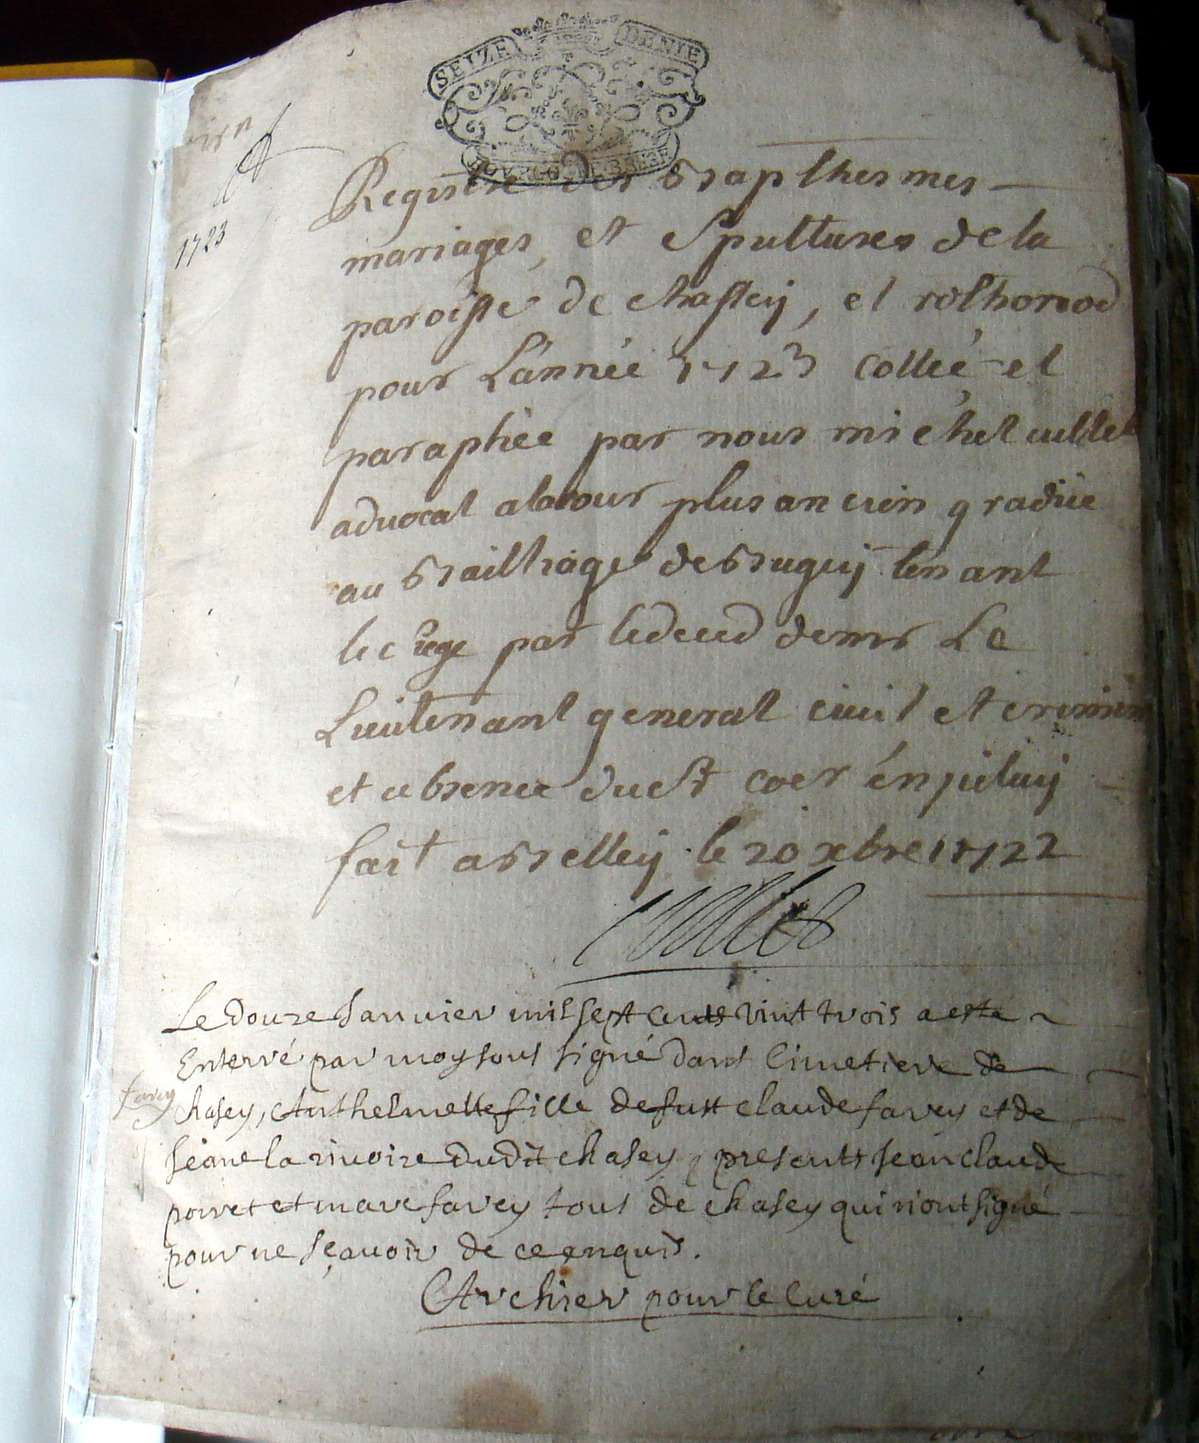 SEIZE DENIE
1723
Registre des Bapthesmes
mariages, et Spultures de la
paroisse de Chassey, et rothonod
pour L'année 1723 Cottée et
paraphée par nous michel cullet
advocat alacour plus ancien gradüe
au Bailliage de Bugey tenant
le siege par ledeced demr Le
Lieutenant general civil et crimin
et absence du st
fait a Belley le 20 xbre 1722
Cullet
Le douze Janvier mil sept cents vint trois a este
Enterré par moy sous signé dans Cimetiere de
favey
Chasey, Anthelmette fille defust claude favey et de
Jeane la rivoire dudit chasey, presents Jean Claude
povret et marc favey tous de chasey qui nont signé
pour ne sçavoir de ce enquis.
Archier pour le curé